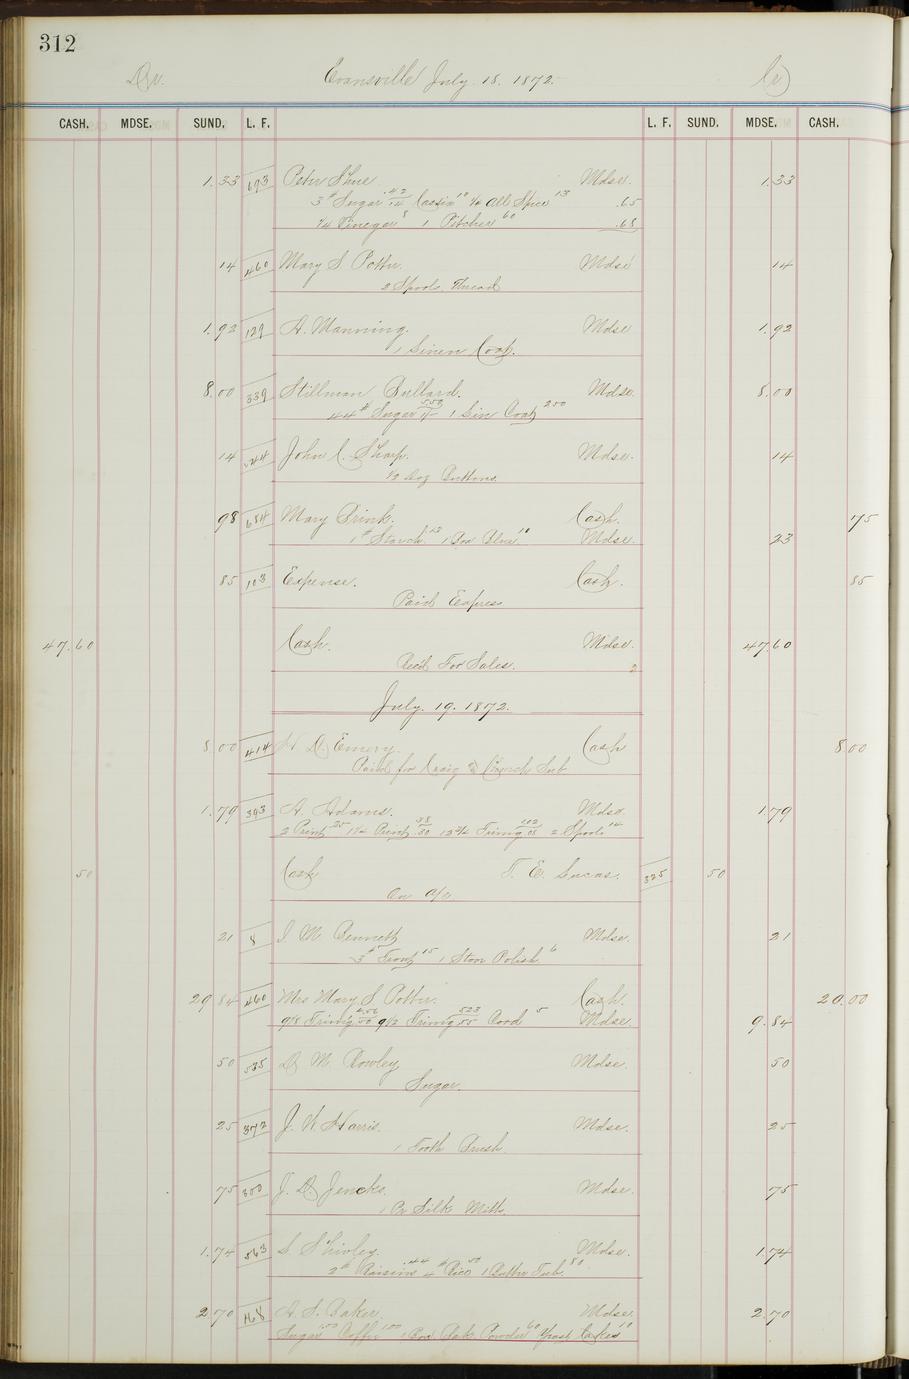 312
Dr. Evansville July 18. 1872. Cr
CASH. MDSE. SUND. L. F. L. F. SUND. MDSE. CASH.
1.33 693 Peter Shue Mdse. 1.33
3# Sugar .42 14 Cassia 10 1/4 All Spice 13 .65
1/4 Vinegar 8 1 Pitcher 60 .68
14 460 Mary S. Potter. Mdse 14
2 Spools Thread
1.92 129 A. Manning. Mdse 1.92
1 Linen Coat.
8.00 339 Stillman Bullard. Mdse. 8.00
44# Sugar 550 1 Lin Coat 250
14 244 John C. Sharp. Mdse. 14
1/2 Doz Buttons.
98 684 Mary Brink. Cash. 75
1# Starch 13 1 Box Blue 10 Mdse. 23
85 103 Expense. Cash. 85
Paid Express
47.60 Cash. Mdse. 47.60
Rec'd For Sales. 2
July. 19. 1872.
8 00 414 H D. Emery. Cash 8 00
Paid for Craig & Church Sub
1.79 393 A. Adams. Mdse. 1.79
2 Print 25 Print 38 30 Trimg 102 08 2 Spools 14
50 Cash T. E. Lucas. 325 50
On a/c
21 8 I. M. Bennett Mdse. 21
15 1 Stove Polish 6
29 84 460 Mrs Mary S Potter. Cash. 20.00
9 1/8 Trimg 456 50 9 1/2 Trimg 523 55 Cord 5 Mdse. 9.84
50 535 D M. Rowley Mdse. 50
Sugar.
25 372 J. W. Harris. Mdse. 25
1 Tooth Brush
75 300 J. D Jencks. Mdse. 75
1 Pr Silk Mitts.
1.74 563 S Shivley. Mdse. 1.74
2# Raisins .44 4# Rice 50 1 Butter Tub. 80
2.70 168 A. S. Baker. Mdse 2.70
Sugar 100 Coffee 100 1 Box Bak Powder 60 Yeast Cakes 10